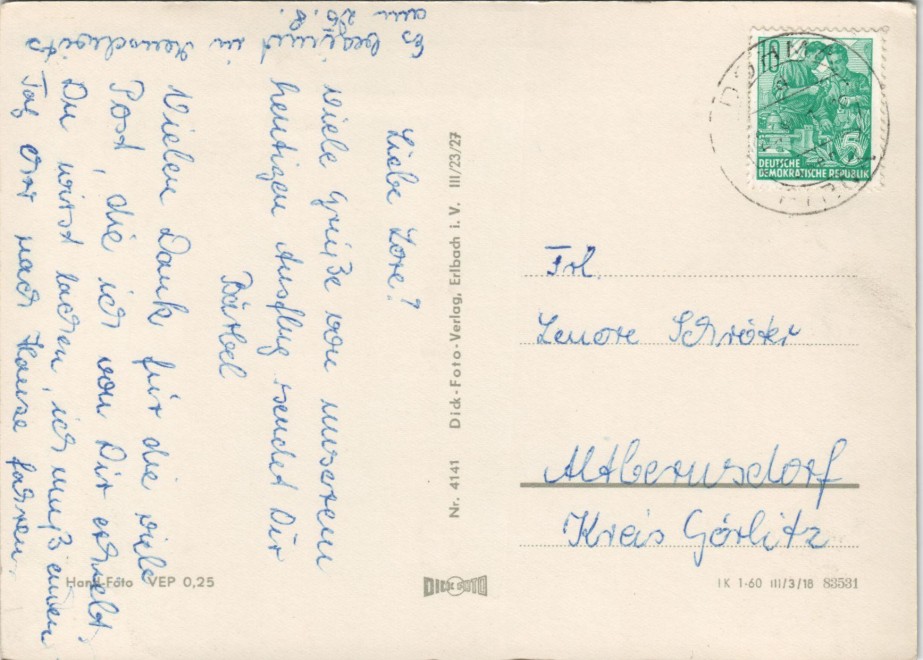 Liebe Lore!
Viele Grüße von unserem
heutigen Ausflug sendet Dir
Bärbel
Vielen Dank für die viele
Post, die ich von Dir erhielt.
Du wirst lachen, ich muß einen
Tag eher nach Hause fahren,
Es beginnt in
am 26.8.
Nr. 4141 Dick-Foto-Verlag, Erlbach i. V. III/23/27
Hand-Foto VEP 0,25
DICK FOTO
10
DEUTSCHE
DEMOKRATISCHE REPUBLIK
Frl.
Lenore Schröter
Altbernsdorf
Kreis Görlitz
IK 1-60 III/3/18 83531